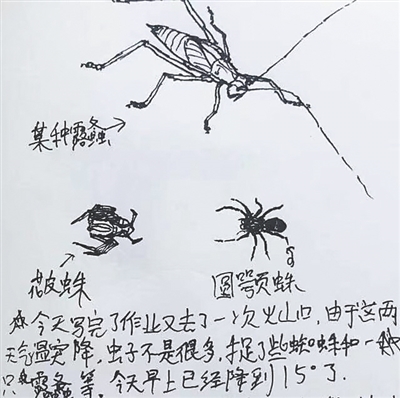 某种露螽→
蛛
圆颚蛛
今天写完了作业又去了一次火山口,由于这两
天气温突降,虫子不是很多,捉了些蜘蛛和一
只露螽等。今天早上已经降到15°了.